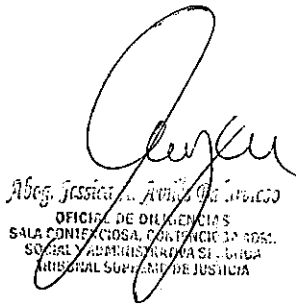 Abog. Jessica
OFICIAL DE DILIGENCIAS
SALA CONTENCIOSA, CONTENCIOSO ADM.
SOCIAL Y ADMINISTRATIVA SEGUNDA
TRIBUNAL SUPREMO DE JUSTICIA